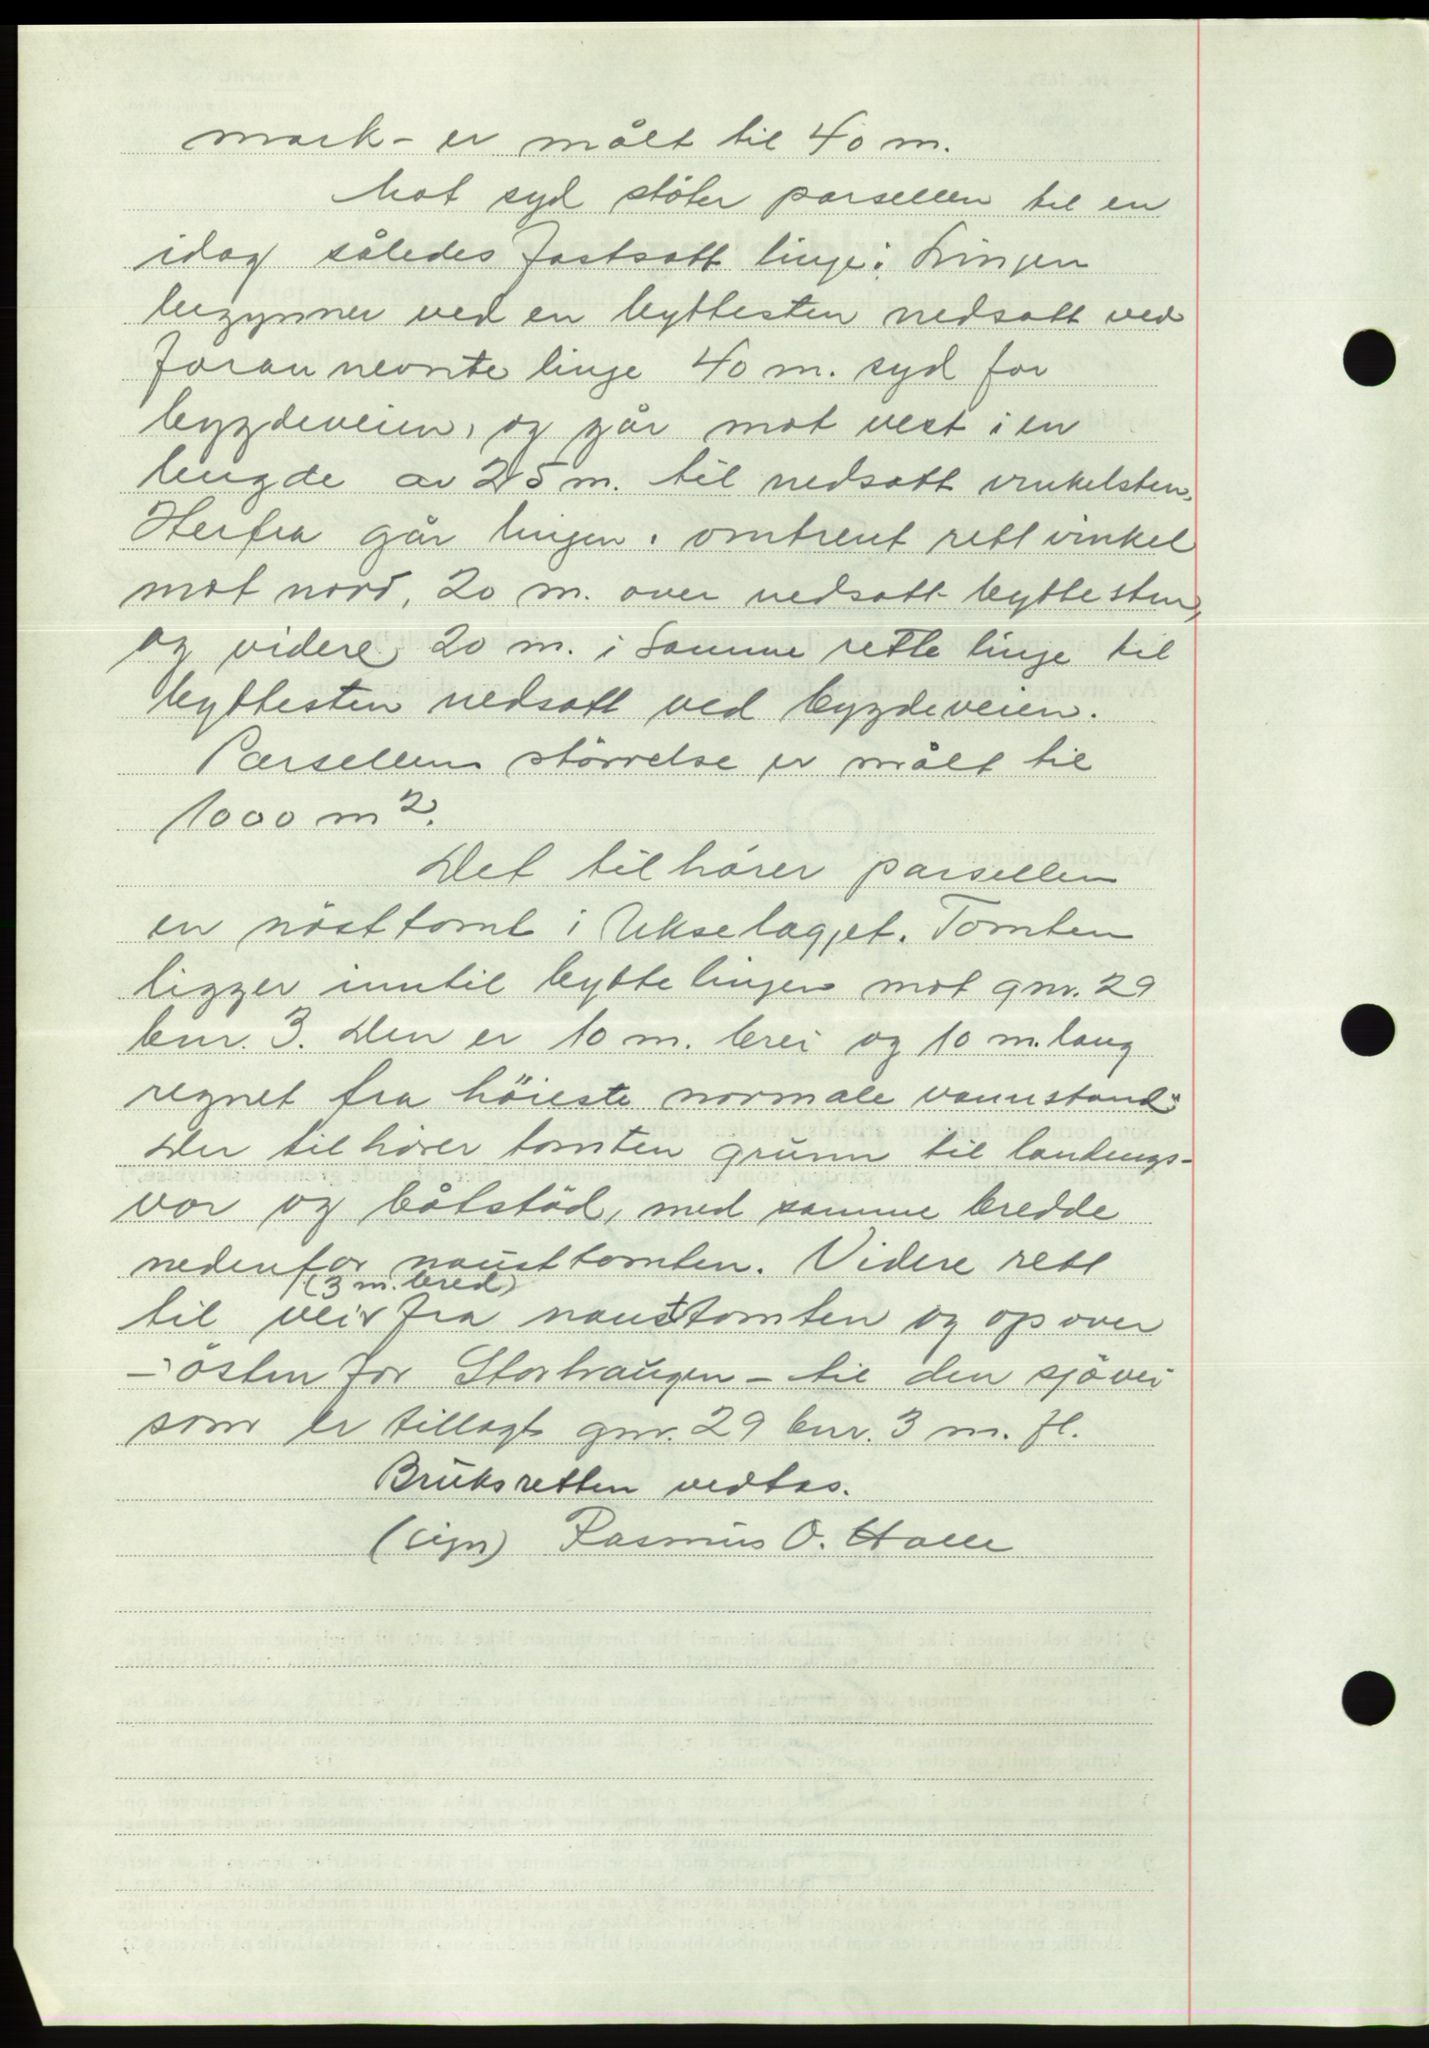 mark - er målt til 40 m.
Mot syd stöter parsellen til en
idag således fastsatt linje: Linjen
begynner ved en byttesten nedsatt ved
foran nevnte linje 40 m. syd for
bygdeveien, og går mot vest i en
lengde av 25 m. til nedsatt vinkelsten.
Herfra går linjen i omtrent rett vinkel
mot nord, 20 m. over nedsatt byttesten,
og videre 20 m. i samme rette linje til
byttesten nedsatt ved bygdeveien.
Parsellens störrelse er målt til
1000 m2.
Det tilhörer parsellen
en nösttomt i Ukselagjet. Tomten
ligger inntil byttelinjen mot gnr. 29
bnr. 3. Den er 10 m. brei og 10 m. lang
regnet fra höieste normale vannstand.
Der tilhörer tomten grunn til landings-
vor og båtstöd, med samme bredde
nedenfor nausttomten. Videre rett
(3 m. bred)
til vei fra nausttomten og opover
- östenfor Storhaugen - til den sjövei
som er tillagt gnr. 29 bnr. 3 m. fl.
Bruksretten vedtas.
(sign) Rasmus O. Halle